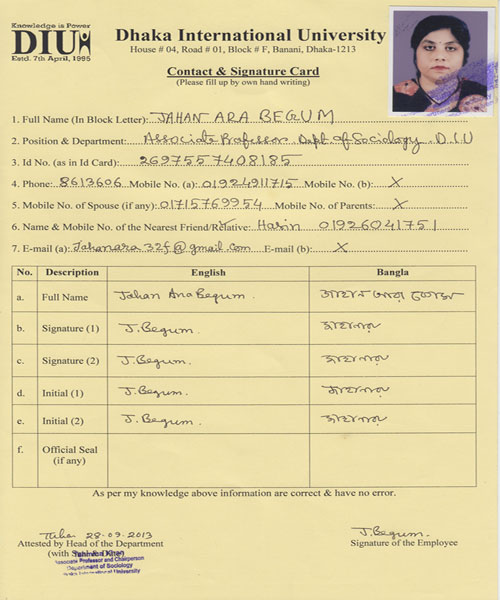 Knowledge is Power
DIU
Estd. 7th April, 1995
Dhaka International University
House # 04, Road # 01, Block # F, Banani, Dhaka-1213
Contact & Signature Card
(Please fill up by own hand writing)
1. Full Name (In Block Letter): JAHAN ARA BEGUM
2. Position & Department: Associate Professor. Dept. of Sociology. D.I.U
3. Id No. (as in Id Card): 2697557408185
4. Phone: 8613606 Mobile No. (a): 01924911715 Mobile No. (b): X
5. Mobile No. of Spouse (if any): 01715769954 Mobile No. of Parents: X
6. Name & Mobile No. of the Nearest Friend/Relative: Harin 01926041751
7. E-mail (a): Jahanara32f@gmail.com E-mail (b): X
No. Description English Bangla
a. Full Name Jahan Ara Begum. জাহান আরা বেগম
b. Signature (1) J. Begum.
c. Signature (2) J. Begum.
d. Initial (1) J. Begum.
e. Initial (2) J. Begum.
f. Official Seal (if any)
As per my knowledge above information are correct & have no error.
28-09-2013 J. Begum.
Attested by Head of the Department Signature of the Employee
(with Seal & Date)
Associate Professor and Chairperson
Department of Sociology
Dhaka International University